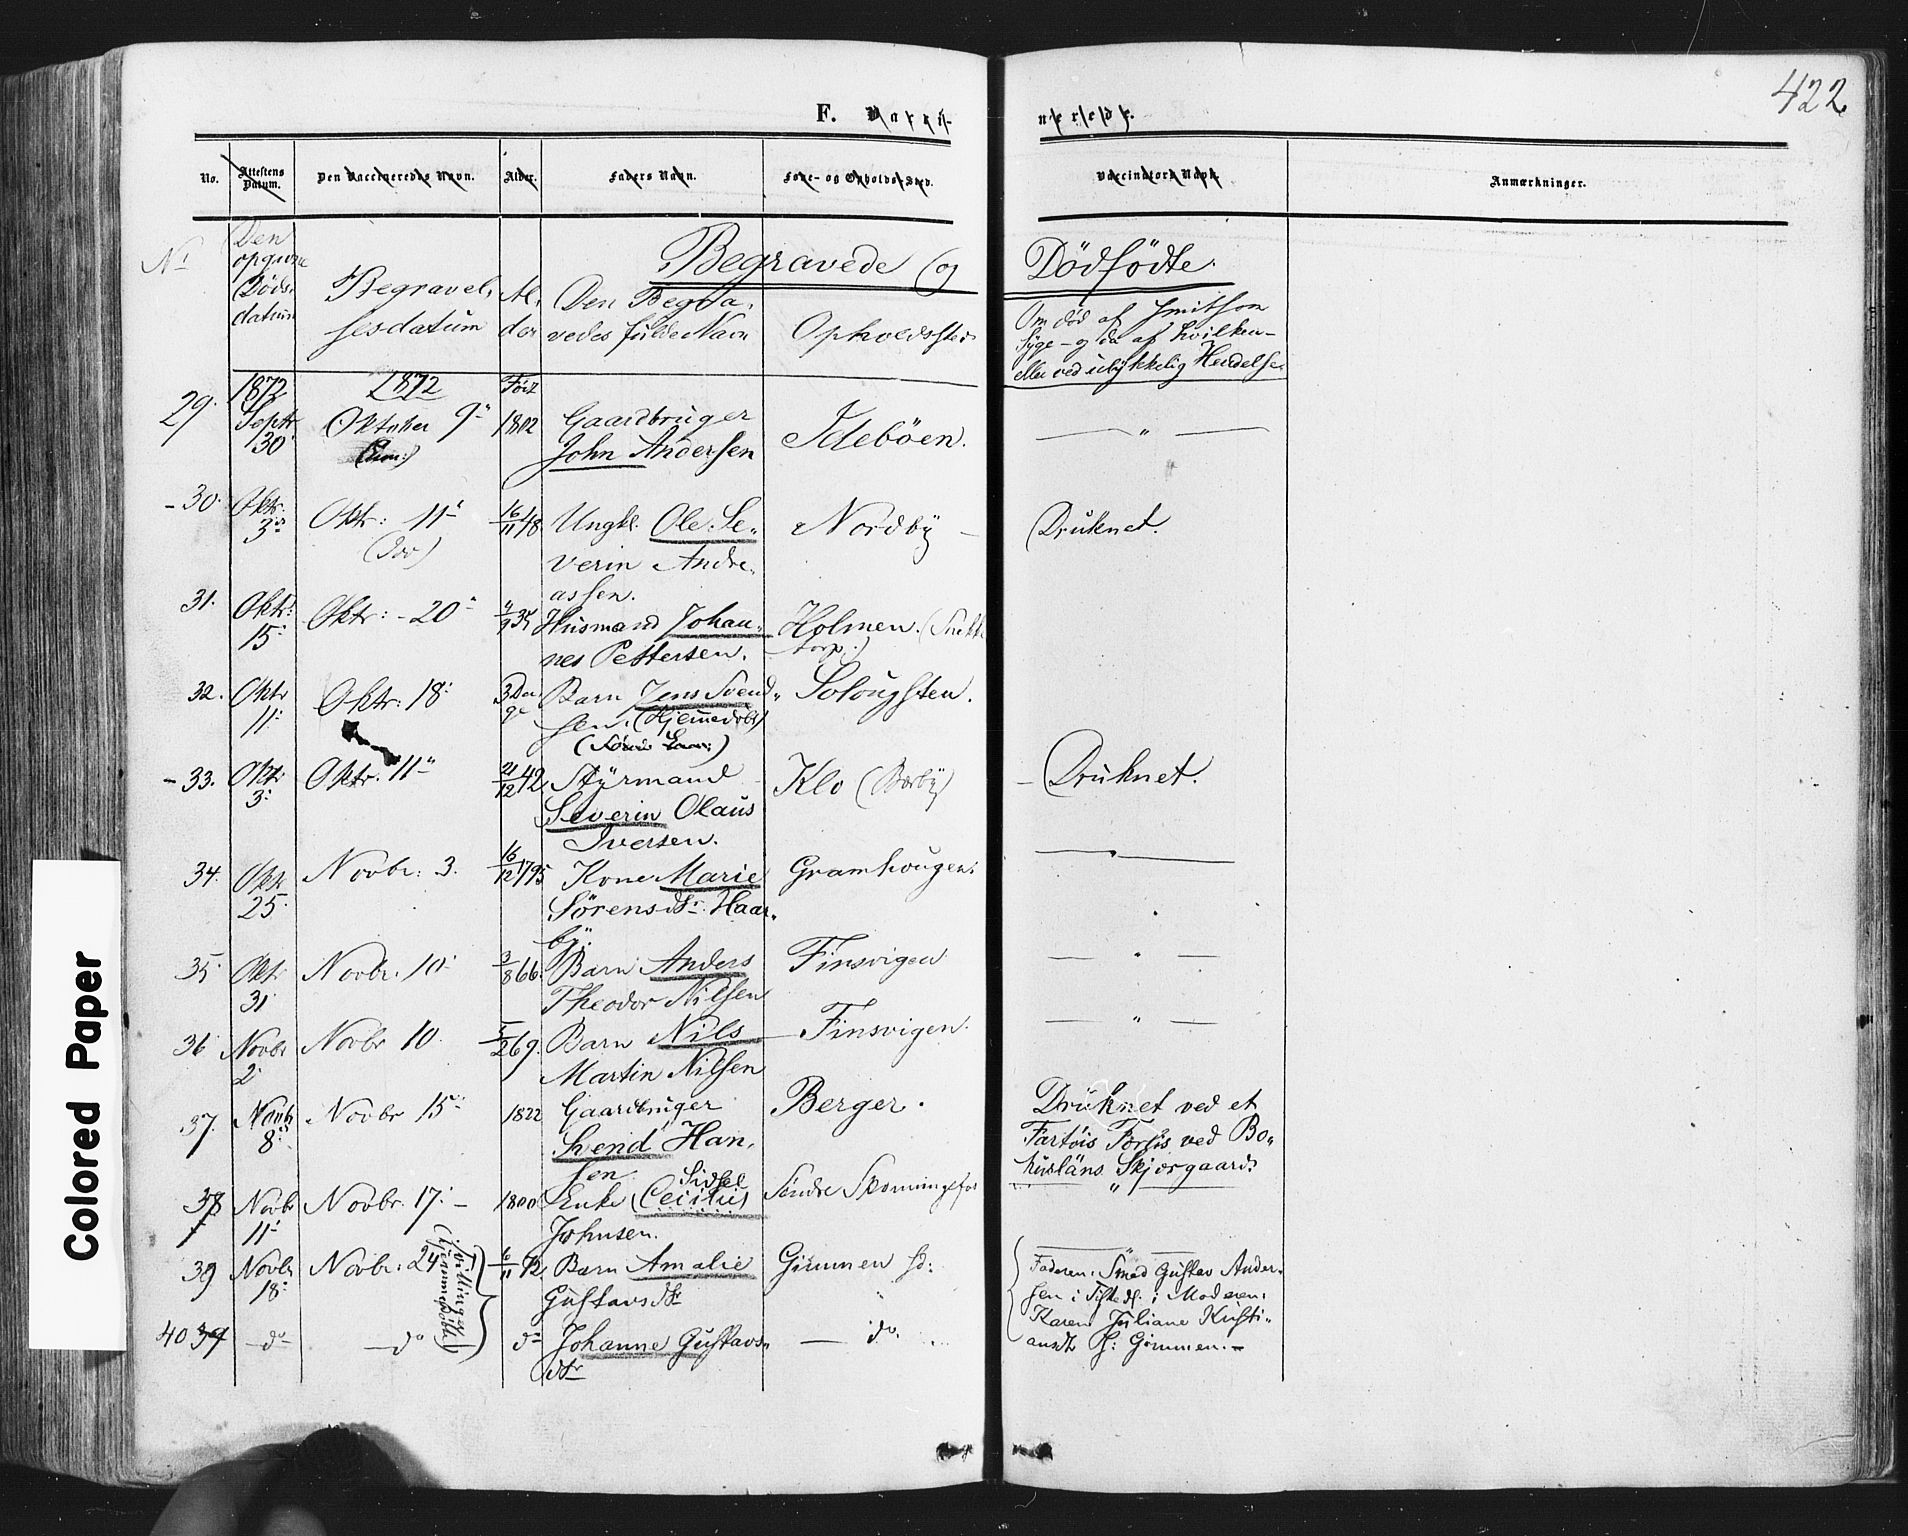 422.
F. Vacci-
nerede.
No. Attestens Datum. Den Vaccineredes Navn. Alder. Faders Navn. Føde- og Opholds-Sted. Vaccinators Navn. Anmærkninger.
Begravede og Dödfödte.
Nr
Den
opgivne
Döds-
datum
Begravel-
sesdatum
Al-
der
Den Begra-
vedes fulde Navn
Opholdssted
Om död af smitsom
Syge - og da af hvilken -
eller ved ulykkelig Hendelse.
1872 1872 Född
29. Septr 30 Oktober 9 1802 Gaardbruger
John Andersen
Idebøen.
- 30. Oktr. 3 Oktr: 11 16/11 48 Ungkl. Ole Se-
(Idd)
verin Andre-
assen.
Nordby
Druknet.
31. Oktr: 15 Oktr: - 20 4/9 35 Husmand Johan-
nes Pettersen.
Holmen. (Snekke-
torp:)
32. Oktr 11 Oktr: 18 3 Da-
ge
Barn Jens Svend-
sen. (Hjemmedöbt)
Solougsten.
- 33. Oktr 3 Oktr. 11 21/12 42 Styrmand
Severin Olaus
Iversen.
Klo (Bærby)
Druknet.
34. Oktr 25 Novbr: 3. 16/12 1795 Kone Marie
Sörensdtr. Haar-
by.
Gramhougen.
35. Oktr 31 Novbr. 10 3/8 66. Barn Anders
Theodor Nilsen
Finsvigen
36 Novbr 2 Novbr 10. 5/2 69. Barn Nils
Martin Nilsen
Finsvigen.
37. Novbr 8 Novbr 15 1822 Gaardbruger
Svend Han-
sen
Berger.
Druknet ved et
Fartöis Forlis ved Bo-
husläns Skjærgaard.
38 Novbr 11 Novbr. 17. - 1800 Enke Sidsel
(Cecilie)
Johnsen.
Söndre
39 Novbr 18 Novbr. 24 6/11 72 Barn Amalie
Gustavsdtr
Gimmen
Tvillinger
hjemmedöbte
Faderen: Smed Gustav Ander-
sen i Tistedl. i Moderen:
Karen Juliane Kristi-
ansdtr Gimmen. -
40 39 - do - - do do Johanne Gustavs-
dtr
- do.
Colored Paper